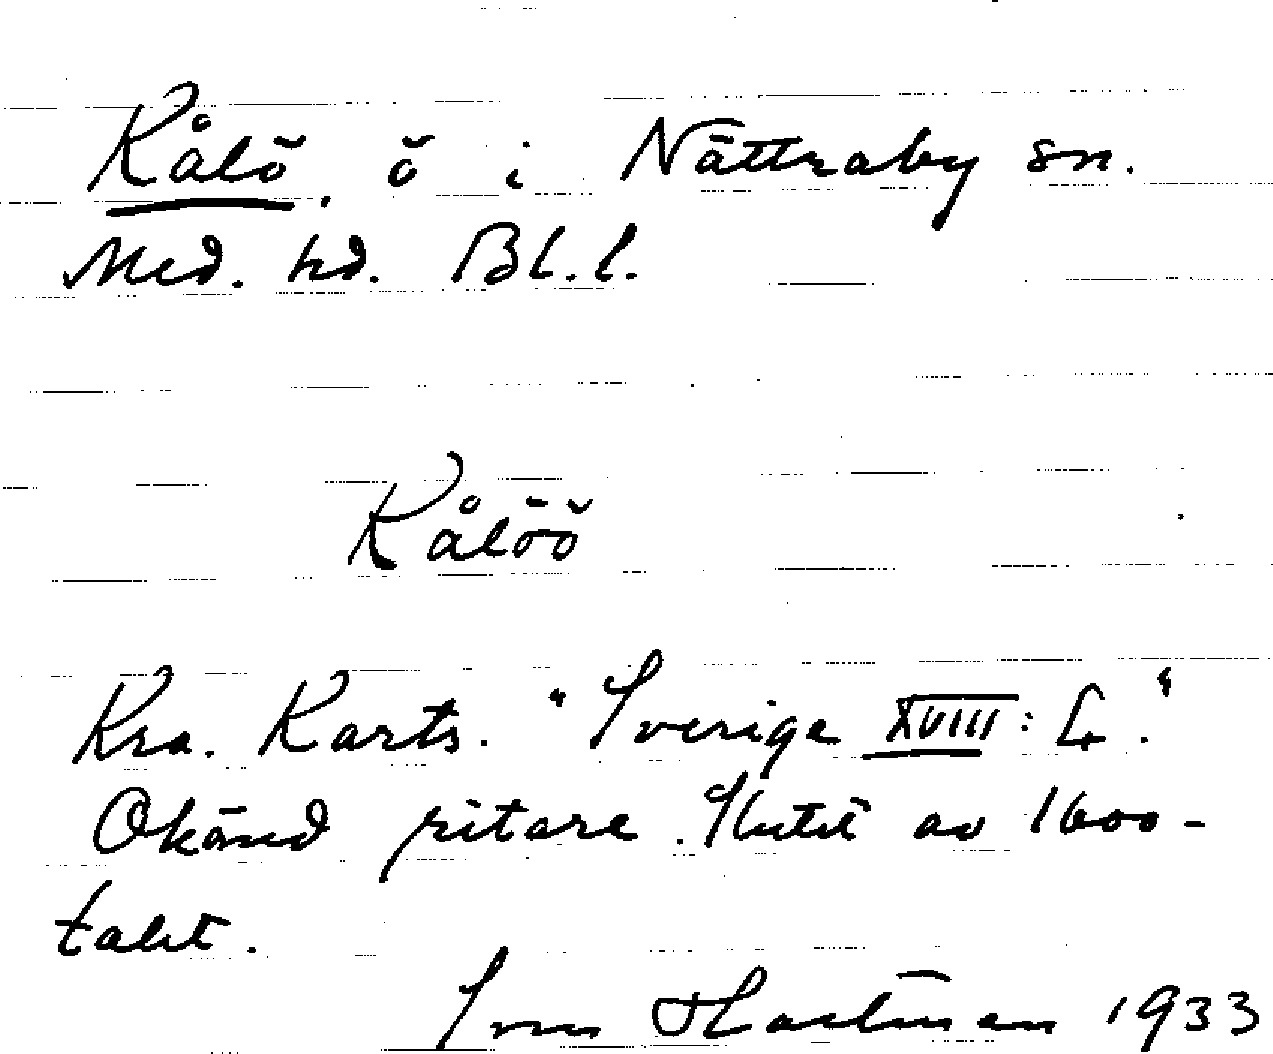 Kålö, ö i Nättraby sn.
Med. hd. Bl. l.
Kålöö
Kra. Karts. "Sverige XVIII: 4."
Okänd ritare. Slutet av 1600-
talet.
Sven Hartman 1933